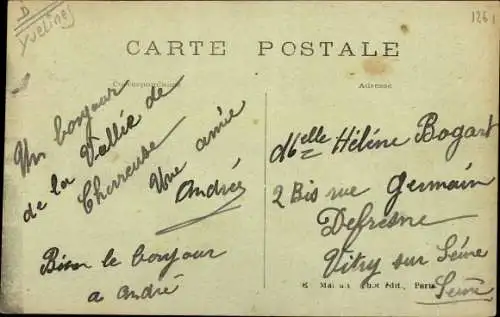 D
Yvelines
1261
CARTE POSTALE
Correspondance
Adresse
Un bonjour
de la Vallée de
Chevreuse
Une amie
Andrée
Bien le bonjour
a André
Melle Hélène Bogart
2 Bis rue Germain
Defresne
Vitry sur Seine
Seine
phot édit., Paris